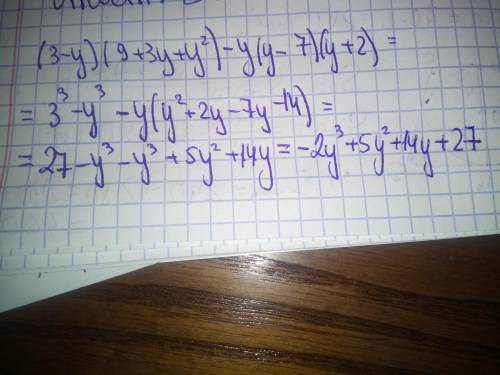 (3-y)(9+3y+y²)-y(y-7)(y+2)=
=3³-y³-y(y²+2y-7y-14)=
=27-y³-y³+5y²+14y=-2y³+5y²+14y+27